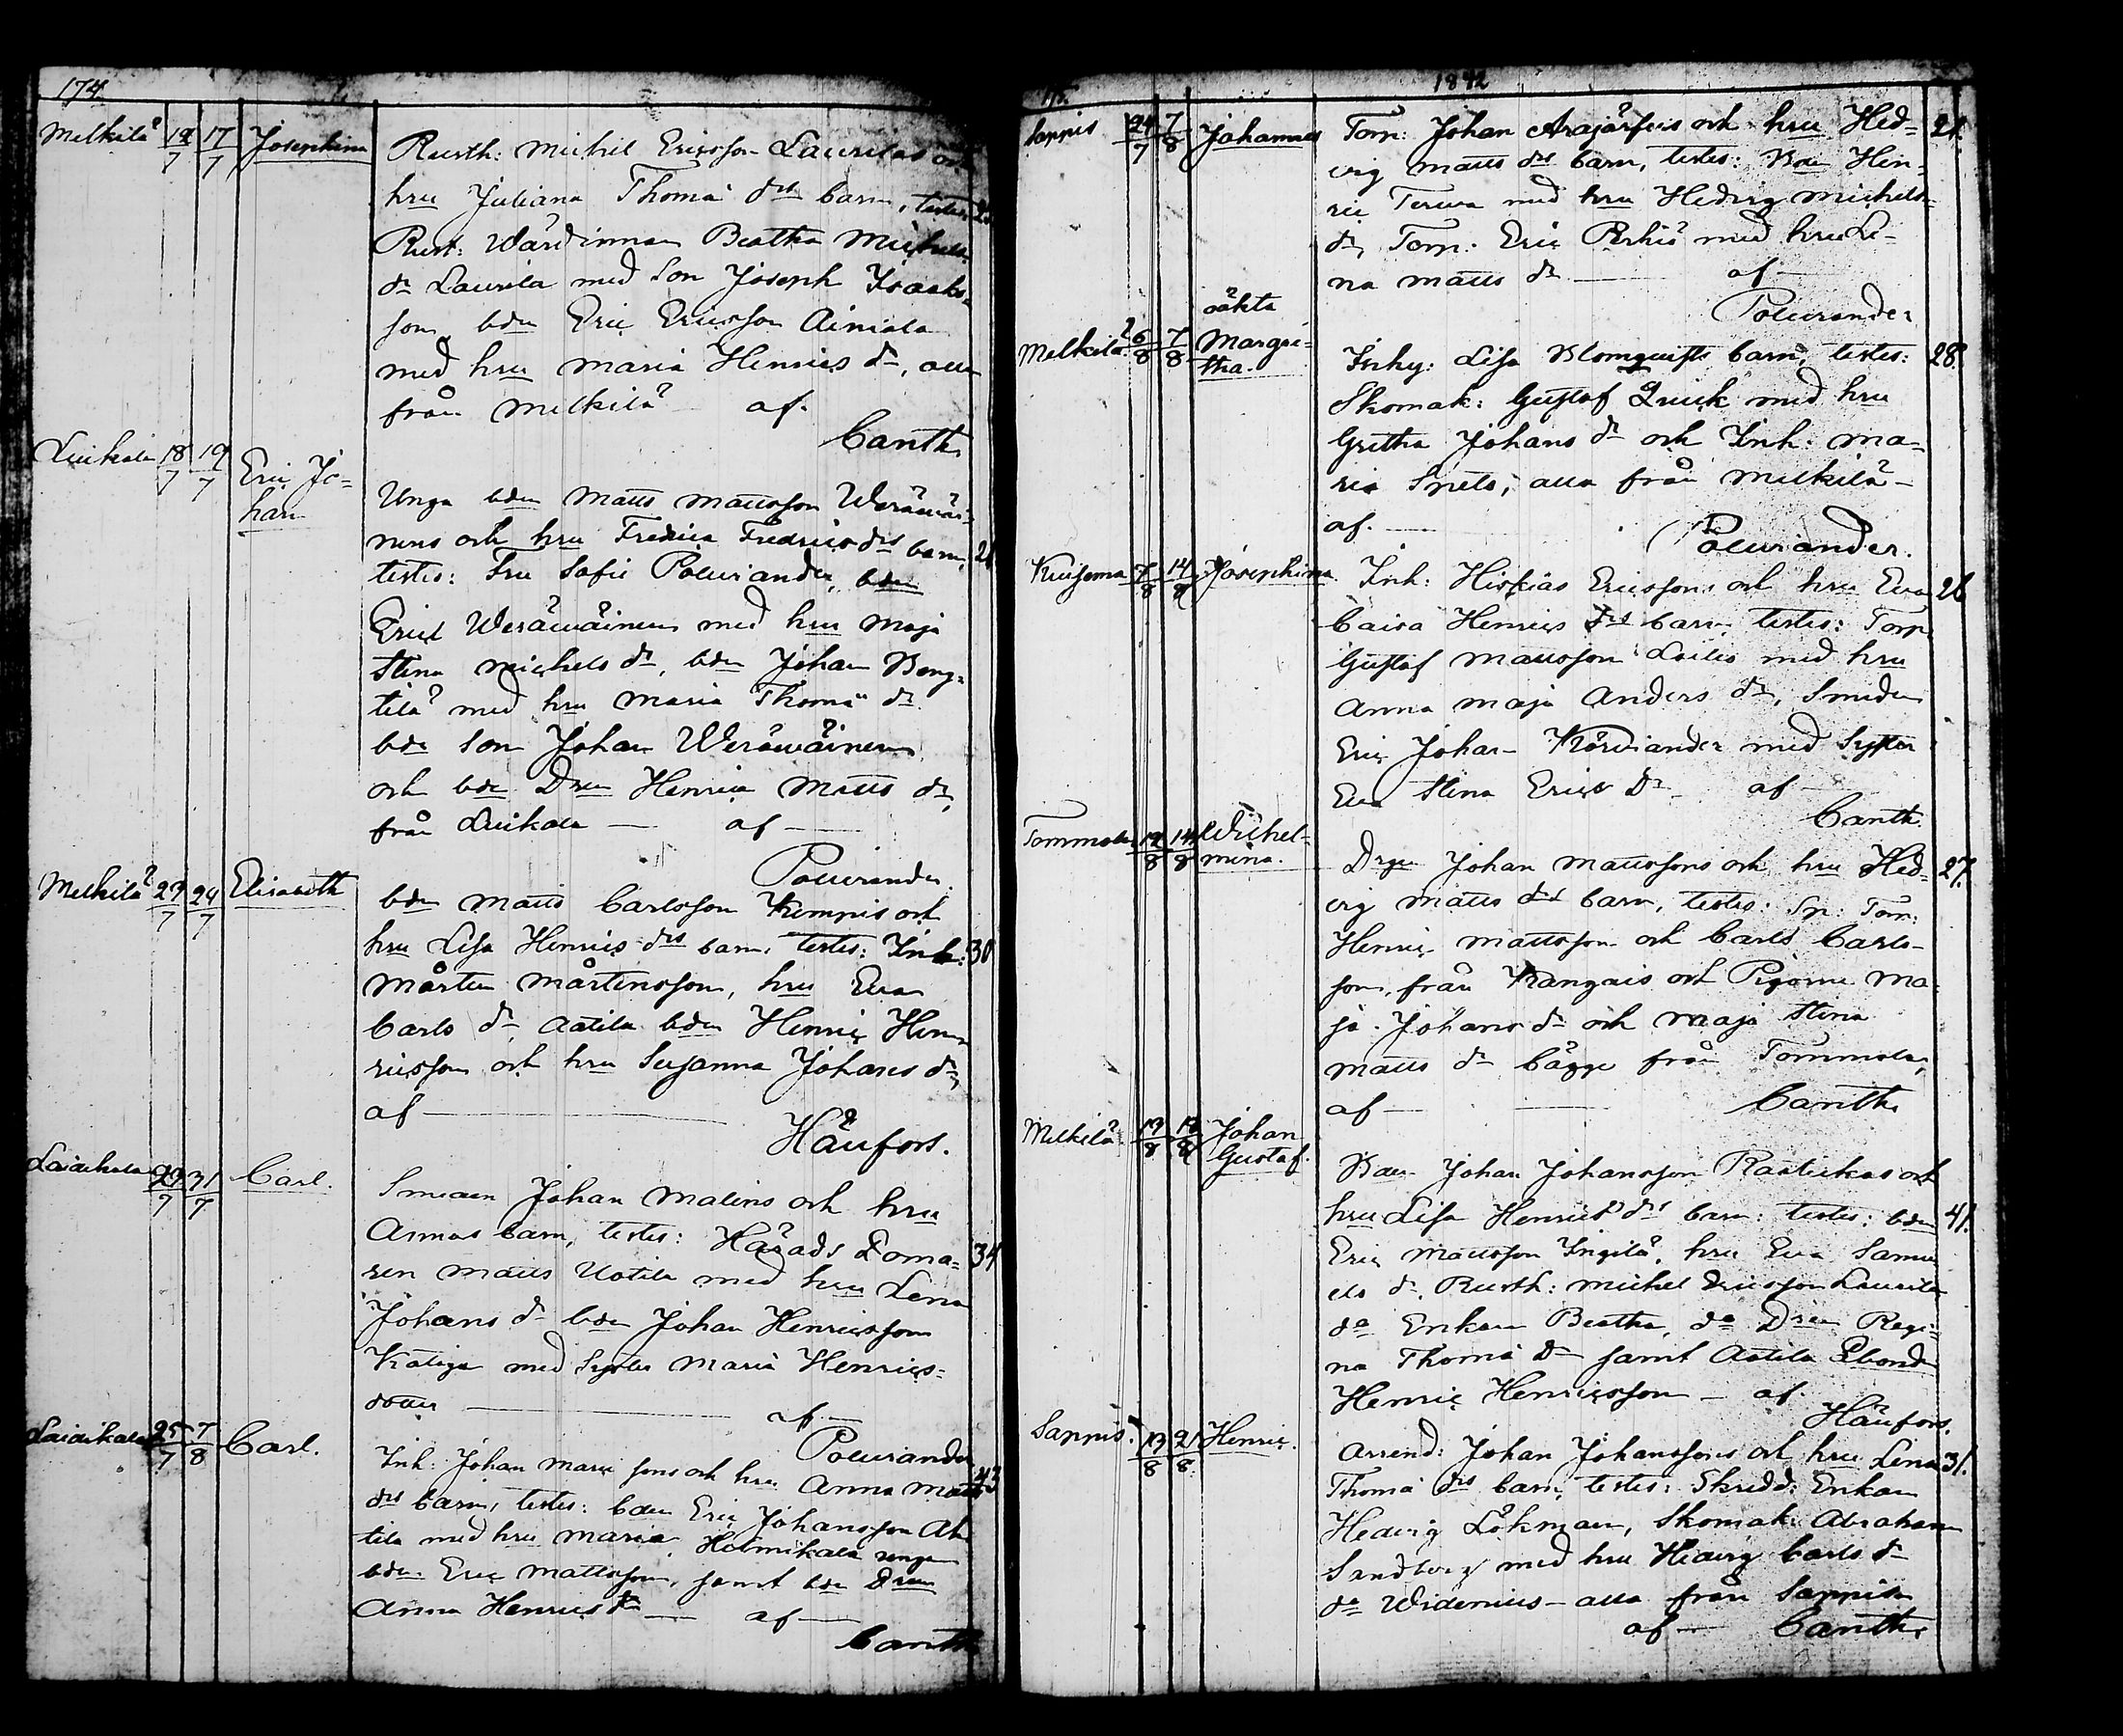 174
Melkilä 12/7 17/7 Josephina
Rusth: Michel Ericsson Laurilas och
hru Juliana Thomæ drs barn, testes
Rust: Wärdinnan Beatha Michels
dr Laurila med Son Joseph Isaaks=
son, bdn Eric Ericsson Ainiala
med hru Maria Henrics dr, alla
från Melkilä af.
Canth.
Luikala 18/7 19/7 Eric Jo=
han
Unga bdn Matts Mattsson Weräwäi=
nens och hru Fredrica Fredrics drs barn,
testes: Fru Sofie Polviander, bdn
Eric Weräwäinen med hru Maja
Stina Michels dr, bdn Johan Beng=
tilä med hru Maria Thomæ dr
bde Son Johan Weräwäinen
och bde Dren Henrica Matts dr,
från Luikala — af —
Polviander.
Melkilä 23/7 24/7 Elisabeth
bdn Matts Carlsson Kempis och
hru Lisa Henrics drs barn, testes: Inh: 30
Mårten Mårtensson, hru Eva
Carls dr Aatila bdn Henric Hen
ricsson och hru Susanna Johans dr,
af —
Häufors.
Laiaikala 31/7 Carl.
Smeden Johan Malins och hru
Annas barn, testes: Härads Doma= 34
ren Matts Uotila med hru Lena
Johans dr bdn Johan Henricsson
Katiga med Syster Maria Henrics=
dotter — af —
Polviander
Laiaikala 25/7 7/8 Carl.
Inh: Johan Marc sons och hru Anna Matts 43
drs barn, testes: bdn Eric Johansson Ah
tila med hru Maria, Heinikala unge
bdn Eric Mattsson, samt bde Dren
Anna Henrics dr — af —
Canth
175. 1842
Sappis 24/7 7/8 Johannes
Torp: Johan Arajärfvis och hru Hed=
vig Matts drs barn, testes: Bdn Hen=
ric Terwa med hru Hedvig Michels
dr, Torp: Eric Perkiö med hru Le=
na Matts dr — af —
Polviander
oäkta
Melkilä 6/8 7/8 Margre=
tha.
Inhy: Lisa Blomquists barn, testes: 28.
Skomak: Gustaf Quick med hru
Gretha Johans dr och Inh: Ma=
ria Snels, alla från Melkilä —
af. —
Polviander.
Kuisema 7/8 14/8 Josephina.
Inh: Hiskias Ericssons och hru Eva 26
Caisa Henrics drs barn, testes: Torp
Gustaf Mattsson Lailis med hru
Anna Maja Anders dr, Smeden
Eric Johan Körviander med Syster
Eva Stina Erics Dr — af —
Canth.
Tommola 12/8 14/8 Wilhel=
mina.
Drgn Johan Mattssons och hru Hed= 27.
vig Matts drs barn, testes: Sp: Tom:
Henric Mattsson och Carls Carls=
son, från Kangais och Pigorne Ma=
ja Johans dr och Maja Stina
Matts dr bägge från Tommola,
af — Canth.
Melkilä 19/8 Johan
Gustaf.
Bdn Johan Johansson Raatikas och
hru Lisa Henrics drs barn: testes: bdn 41.
Eric Mattsson Ingilä, hru Eva Samu
els dr, Rusth: Michel Ericsson Laurila
do Enkan Beatha, do Dren Regi=
na Thomæ Dr samt Aatila Ebond
Henric Henricsson — af
Häufors.
Sappis. 13/8 21/8 Henric.
Arrend: Johan Johanssons och hru Lena 31.
Thomæ drs barn, testes: Skredd: Enkan
Hedvig Lökman, Skomak: Abraham
Sandberg med hru Hedvig Carls dr
do Widenius — alla från Sappis
af — Canth.